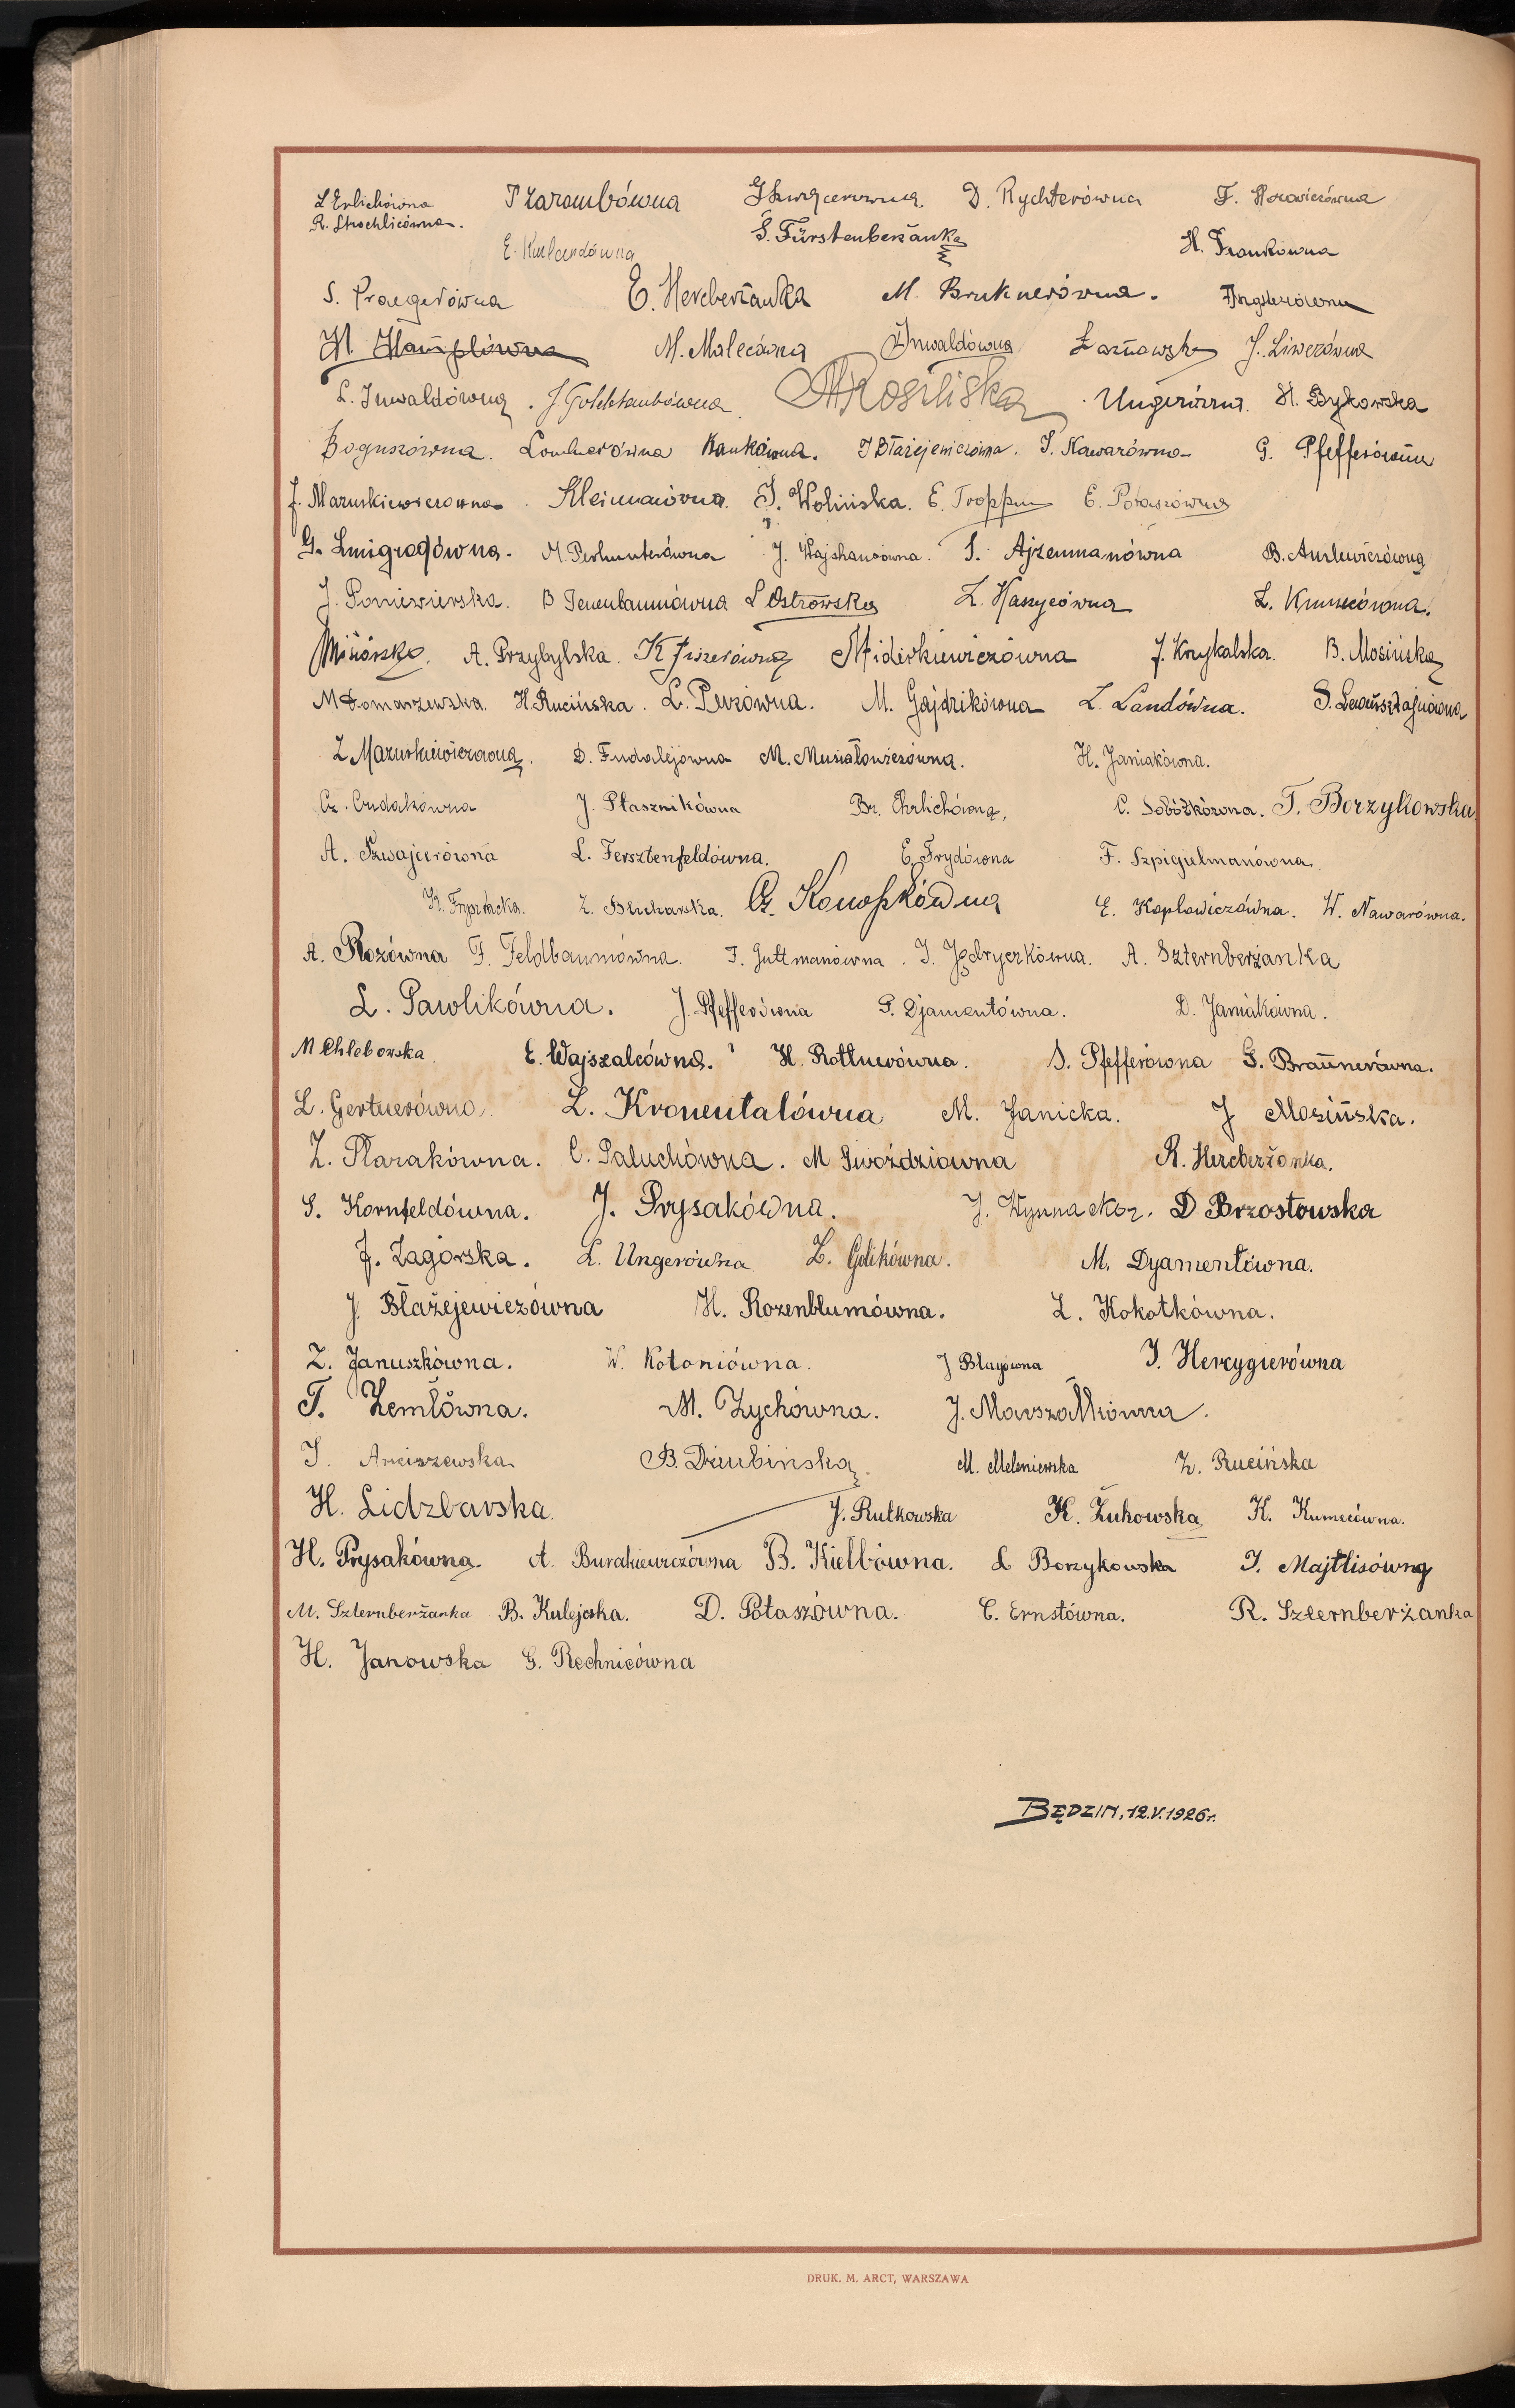 L Erlichówna P Zarambówna G Szwajcerówna D. Rychterówna F. Horowiczówna
R. Strochlicówna.
E. Kurlandówna S. Fürstenberżanka H. Frankówna
S. Praegerówna E. Hercberżanka M. Bruknerówna.
H. Hamplówna M. Malecówna Inwaldówna Żarnowska J. Liwerówna
L. Inwaldówna. J Goldblumówna. Ungerówna. H. Bykowska
Boguszówna. Bankówna. J Błażejewiczówna. S. Nawarówna G. Pfefferówna
J. Mazurkiewiczówna. Kleimanówna. J. Wolińska. E. Tropp E. Potaszówna
G. Szmigrodówna. M. Perlmuterówna J. Wajshausówna. S. Ajzenmanówna
J. Poniewierska. B Tenenbaumówna S Ostrowska Z. Haszycówna L. Kumecówna.
A. Przybylska. K Fiszerówna J. Krzykalska. B. Mosińska
M Domaszewska. H. Rucińska. L. Perzówna. M. Gajdzikówna L. Landówna.
Z Mazurkiewiczówna. D. Fudalejówna M. Musiałowiczówna. H. Janiakówna.
Cz. Cudakówna J. Ptasznikówna Br. Ehrlichówna, C. Sobóżkówna. T. Borzykowska.
A. Szwajcerówna L. Fersztenfeldówna. E. Frydówna F. Szpigielmanówna.
K. Frysztacka. Z. Blicharska. Cz. Konopkówna E. Kaplowiczówna. W. Nawarówna.
A. Rozówna F. Feldbaumówna. F. Guttmanówna. J. Jędryczkówna. A. Szternberżanka
L. Pawlikówna. J. Pfefferówna P. Djamentówna. D. Janiakówna.
M Chlebowska. E. Wajszalcówna. H. Rottnerówna. S. Pfefferówna G. Braunerówna.
L. Gertnerówna. L. Kronentalówna M. Janicka. J Mosińska.
Z. Ptarakówna. C. Paluchówna. M Gwoździówna R. Hercberżanka.
S. Kornfeldówna. J. Prysakówna. D Brzostowska
J. Zagórska. L. Ungerówna. L. Golikówna. M. Dyamentówna.
J. Błażejewiczówna H. Rozenblumówna. L. Kokotkówna.
Z. Januszkówna. W. Kotoniówna. J Blayówna J. Hercygierówna
T. Zemłówna. M. Zychówna. J. Marszałkówna.
J. Arciszewska B. Dziubińska. M. Meleniewska Z. Rucińska
H. Lidzbarska. J. Rutkowska K. Żukowska K. Kumecówna.
H. Prysakówna. A. Burakiewiczówna B. Kiełbówna. L Borzykowska J. Majtlisówna
M. Szternberżanka B. Kulejcska. D. Potaszówna. C. Ernstówna. R. Szternberżanka
H. Janowska G. Rechnicówna
BĘDZIN, 12.V.1926 r.
DRUK. M. ARCT, WARSZAWA